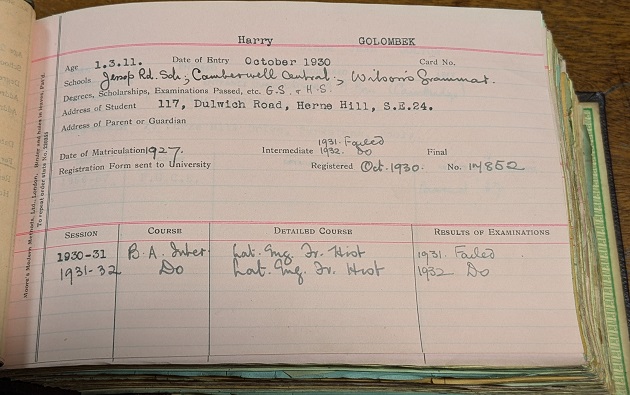 Harry GOLOMBEK
Age 1.3.11. Date of Entry October 1930 Card No.
Schools Jessop Rd. Sch; Camberwell Central; Wilson's Grammar.
Degrees, Scholarships, Examinations Passed, etc. G.S. & H.S.
Address of Student 117, Dulwich Road, Herne Hill, S.E.24.
Address of Parent or Guardian
1931. Failed
Date of Matriculation 1927. Intermediate 1932. Do Final
Registration Form sent to University Registered Oct. 1930. No.
SESSION COURSE DETAILED COURSE RESULTS OF EXAMINATIONS
1930-31 B.A. Inter Lat. Eng. Fr. Hist 1931. Failed
1931-32 Do Lat. Eng. Fr. Hist 1932 Do
Moore's Modern Methods, Ltd., London.
To repeat order state No.